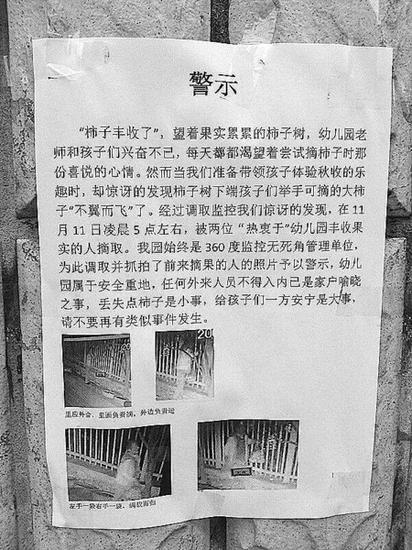 警示
“柿子丰收了”，望着果实累累的柿子树，幼儿园老
师和孩子们兴奋不已，每天都都渴望着尝试摘柿子时那
份喜悦的心情。然而当我们准备带领孩子体验秋收的乐
趣时，却惊讶的发现柿子树下端孩子们举手可摘的大柿
子“不翼而飞”了。经过调取监控我们惊讶的发现，在 11
月 11 日凌晨 5 点左右，被两位“热衷于”幼儿园丰收果
实的人摘取。我园始终是 360 度监控无死角管理单位，
为此调取并抓拍了前来摘果的人的照片予以警示，幼儿
园属于安全重地，任何外来人员不得入内已是家户喻晓
之事，丢失点柿子是小事，给孩子们一方安宁是大事，
请不要再有类似事件发生。
20
里应外合，里面负责摘，外边负责运
左手一袋右手一袋，满载而归